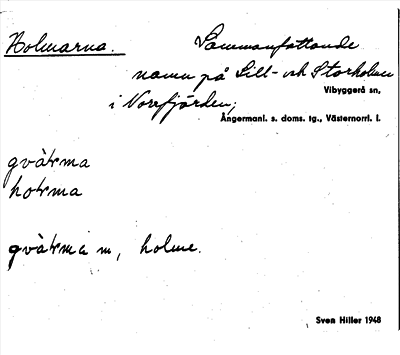 Holmarna.
Sammanfattande
namn på Lill- och Storholmen
Vibyggerå sn,
i Norrfjärden;
Ångermanl. s. doms. tg., Västernorrl. l.
holme.
Sven Hiller 1948